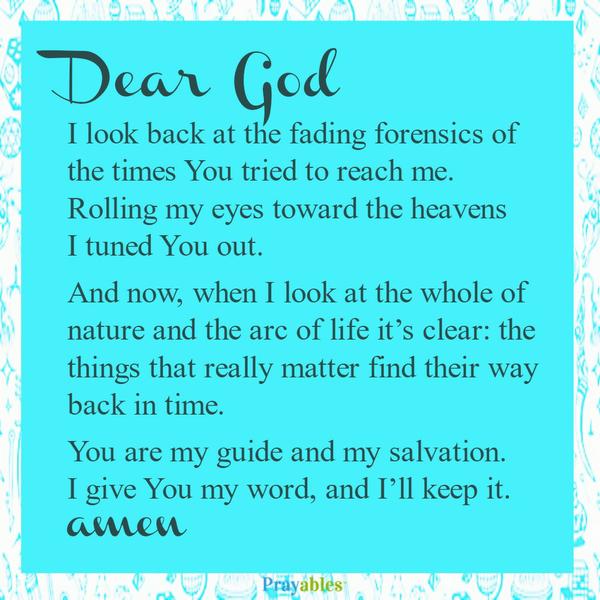 Dear God
I look back at the fading forensics of
the times You tried to reach me.
Rolling my eyes toward the heavens
I tuned You out.
And now, when I look at the whole of
nature and the arc of life it’s clear: the
things that really matter find their way
back in time.
You are my guide and my salvation.
I give You my word, and I’ll keep it.
amen
Prayables